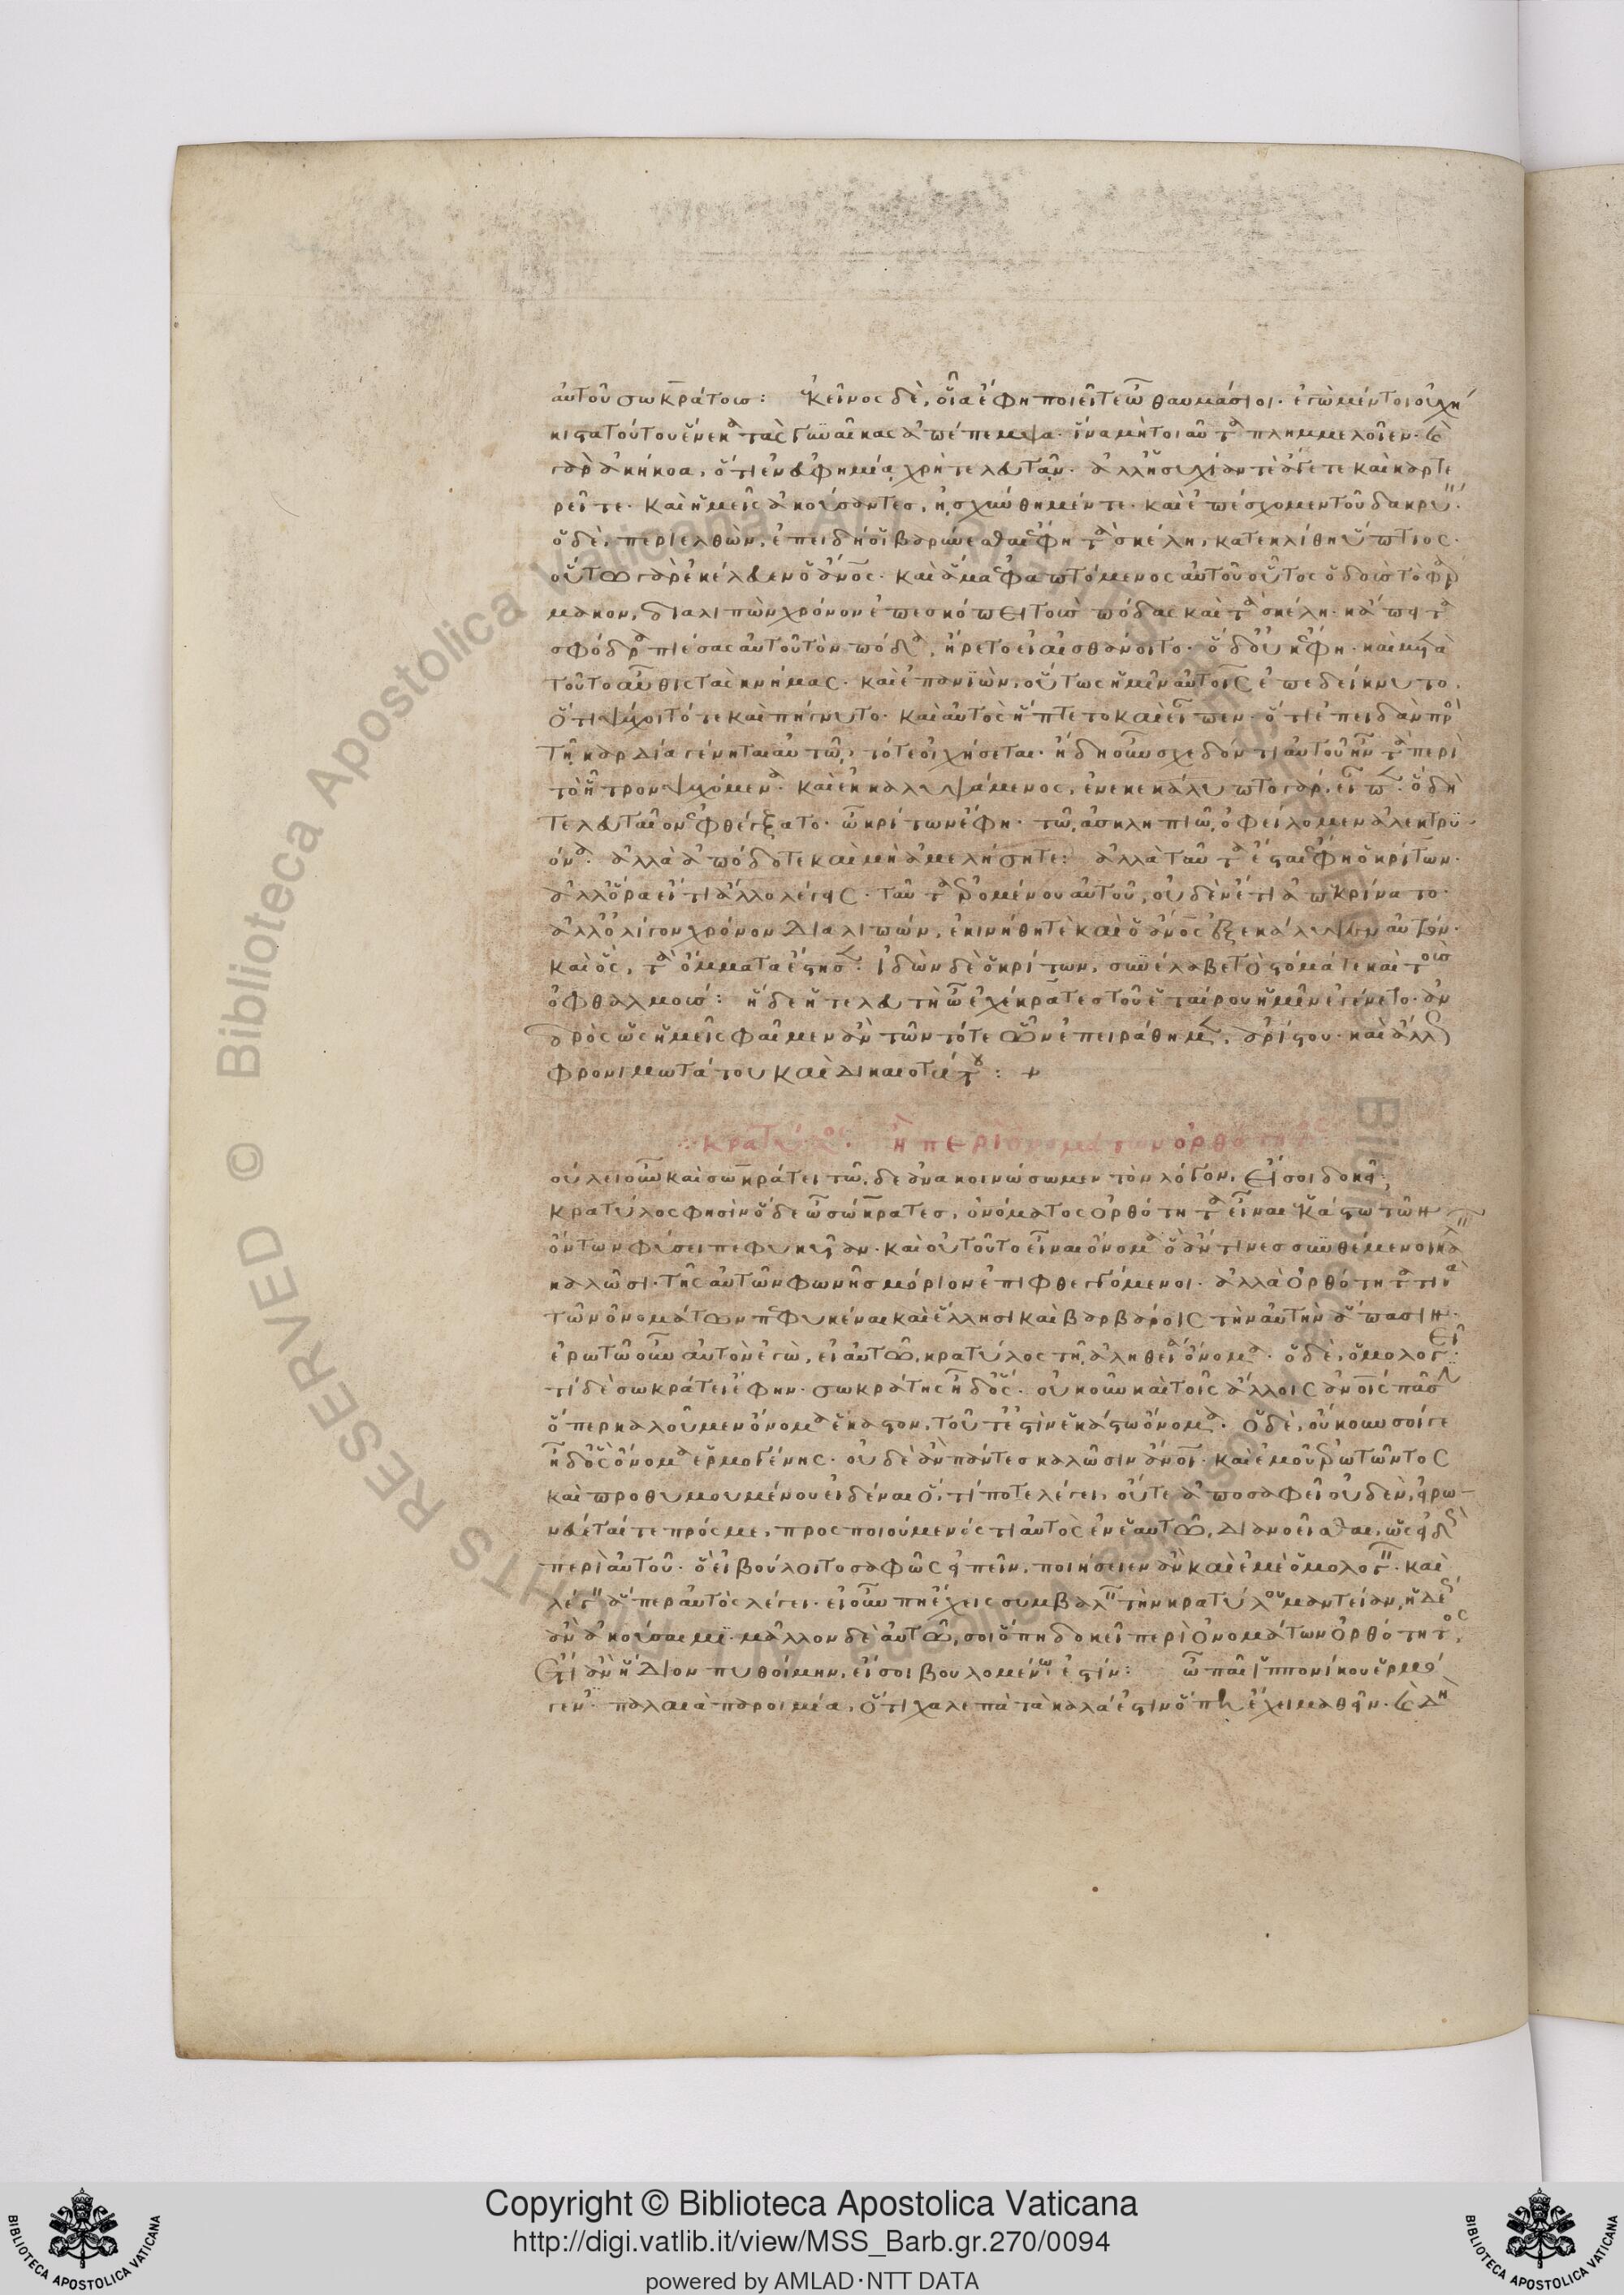 αὐτοῦ σωκράτους: ἐκεῖνος δὲ, οἷα ἔφη ποιεῖτε ὦ θαυμάσιοι· ἐγὼ μέντοι οὐχ ἥ
κιστα τούτου ἕνεκα τὰς γυναῖκας ἀπέπεμψα· ἵνα μὴ τοιαῦτα πλημμελοῖεν· καὶ
γὰρ ἀκήκοα, ὅτι ἐν εὐφημίᾳ χρὴ τελευτᾶν· ἀλλ' ἡσυχίαν τὲ ἄγετε καὶ καρτε
ρεῖτε· καὶ ἡμεῖς ἀκούσαντες, ᾐσχύνθημέν τε· καὶ ἐπέσχομεν τοῦ δακρύειν·
ὁ δὲ, περιελθὼν, ἐπειδή οἱ βαρύνεσθαι ἔφη τὰ σκέλη, κατεκλίθη ὕπτιος·
οὕτω γὰρ ἐκέλευεν ὁ ἄνος· καὶ ἅμα ἐφαπτόμενος αὐτοῦ οὗτος ὁ δοὺς τὸ φάρ
μακον, διαλιπὼν χρόνον ἐπεσκόπει τοὺς πόδας καὶ τὰ σκέλη· κἄπειτα
σφόδρα πιέσας αὐτοῦ τὸν πόδα, ἤρετο εἰ αἰσθάνοιτο· ὁ δ' οὐκ ἔφη· καὶ μετὰ
τοῦτο αὖθις τὰς κνήμας· καὶ ἐπανιὼν, οὕτως ἡμῖν αὐτοῖς ἐπεδείκνυτο,
ὅτι ψύχοιτό τε καὶ πήγνυτο· καὶ αὐτὸς ἥπτετο καὶ εἶπεν· ὅτι ἐπειδὰν πρὸς
τῇ καρδίᾳ γένηται αὐτῷ, τότε οἰχήσεται· ἤδη οὖν σχεδόν τι αὐτοῦ ἦν τὰ περὶ
τὸ ἦτρον ψυχόμενα· καὶ ἐκκαλυψάμενος, ἐνεκεκάλυπτο γάρ, εἶπεν· ὃ δὴ
τελευταῖον ἐφθέγξατο· ὦ κρίτων ἔφη· τῷ ἀσκληπιῷ ὀφείλομεν ἀλεκτρυ
όνα· ἀλλὰ ἀπόδοτε καὶ μὴ ἀμελήσητε: ἀλλὰ ταῦτα ἔσται ἔφη ὁ κρίτων·
ἀλλ' ὅρα εἴ τι ἄλλο λέγεις· ταῦτα ἐρομένου αὐτοῦ, οὐδὲν ἔτι ἀπεκρίνατο·
ἀλλ' ὀλίγον χρόνον διαλιπών, ἐκινήθη τὲ καὶ ὁ ἄνος ἐξεκάλυψεν αὐτόν·
καὶ ὃς, τὰ ὄμματα ἔστησεν· ἰδὼν δὲ ὁ κρίτων, συνέλαβε τὸ στόμα τε καὶ τοὺς
ὀφθαλμούς: ἥδε ἡ τελευτὴ ὦ ἐχέκρατες τοῦ ἑταίρου ἡμῖν ἐγένετο· ἀν
δρὸς ὡς ἡμεῖς φαῖμεν ἂν τῶν τότε ὧν ἐπειράθημεν, ἀρίστου· καὶ ἄλλως
φρονιμωτάτου καὶ δικαιοτάτου: +
κρατύλος· ἢ περὶ ὀνομάτων ὀρθότητος
οὐλει οὖν καὶ σωκράτει τῷδε ἀνακοινώσωμεν τὸν λόγον, εἴ σοι δοκεῖ·
κρατύλος φησὶν ὅδε ὦ σώκρατες, ὀνόματος ὀρθότητα εἶναι ἑκάστῳ τῶν
ὄντων φύσει πεφυκυῖαν· καὶ οὐ τοῦτο εἶναι ὄνομα ὃ ἄν τινες συνθέμενοι καλεῖν
καλῶσι· τῆς αὐτῶν φωνῆς μόριον ἐπιφθεγγόμενοι· ἀλλὰ ὀρθότητά τινα
τῶν ὀνομάτων πεφυκέναι καὶ ἕλλησι καὶ βαρβάροις τὴν αὐτὴν ἅπασιν·
ἐρωτῶ οὖν αὐτὸν ἐγὼ, εἰ αὐτῷ, κρατύλος τῇ ἀληθείᾳ ὄνομα· ὁ δὲ, ὁμολογεῖ·
τί δὲ σωκράτει ἔφην· σωκράτης ἦ δ' ὅς· οὐκοῦν καὶ τοῖς ἄλλοις ἀνοις πᾶσιν
ὅπερ καλοῦμεν ὄνομα ἕκαστον, τοῦτ' ἔστιν ἑκάστῳ ὄνομα· ὁ δὲ, οὔκουν σοί γε
ἦ δ' ὃς ὄνομα ἑρμογένης· οὐδὲ ἂν πάντες καλῶσιν ἄνοι· καὶ ἐμοῦ ἐρωτῶντος
καὶ προθυμουμένου εἰδέναι ὅ, τί ποτε λέγει, οὔτε ἀποσαφεῖ οὐδὲν, εἰρω
νεύεταί τε πρός με, προσποιούμενός τι αὐτὸς ἐν ἑαυτῷ, διανοεῖσθαι, ὡς εἰδὼς
περὶ αὐτοῦ· ὃ εἰ βούλοιτο σαφῶς εἰπεῖν, ποιήσειεν ἂν καὶ ἐμὲ ὁμολογεῖν· καὶ
λέγειν ἅπερ αὐτὸς λέγει· εἰ οὖν πη ἔχεις συμβαλεῖν τὴν κρατύλου μαντείαν, ἡδέως
ἂν ἀκούσαιμι· μᾶλλον δὲ αὐτῷ, σοι ὅπη δοκεῖ περὶ ὀνομάτων ὀρθότητος,
ἔτι ἂν ἥδιον πυθοίμην, εἴ σοι βουλομένῳ ἐστίν: ὦ παῖ ἱππονίκου ἑρμό
γενες· παλαιὰ παροιμία, ὅτι χαλεπὰ τὰ καλά ἐστιν ὅπῃ ἔχει μαθεῖν· καὶ δὴ
Copyright © Biblioteca Apostolica Vaticana
http://digi.vatlib.it/view/MSS_Barb.gr.270/0094
powered by AMLAD·NTT DATA
BIBLIOTECA APOSTOLICA VATICANA
BIBLIOTECA APOSTOLICA VATICANA